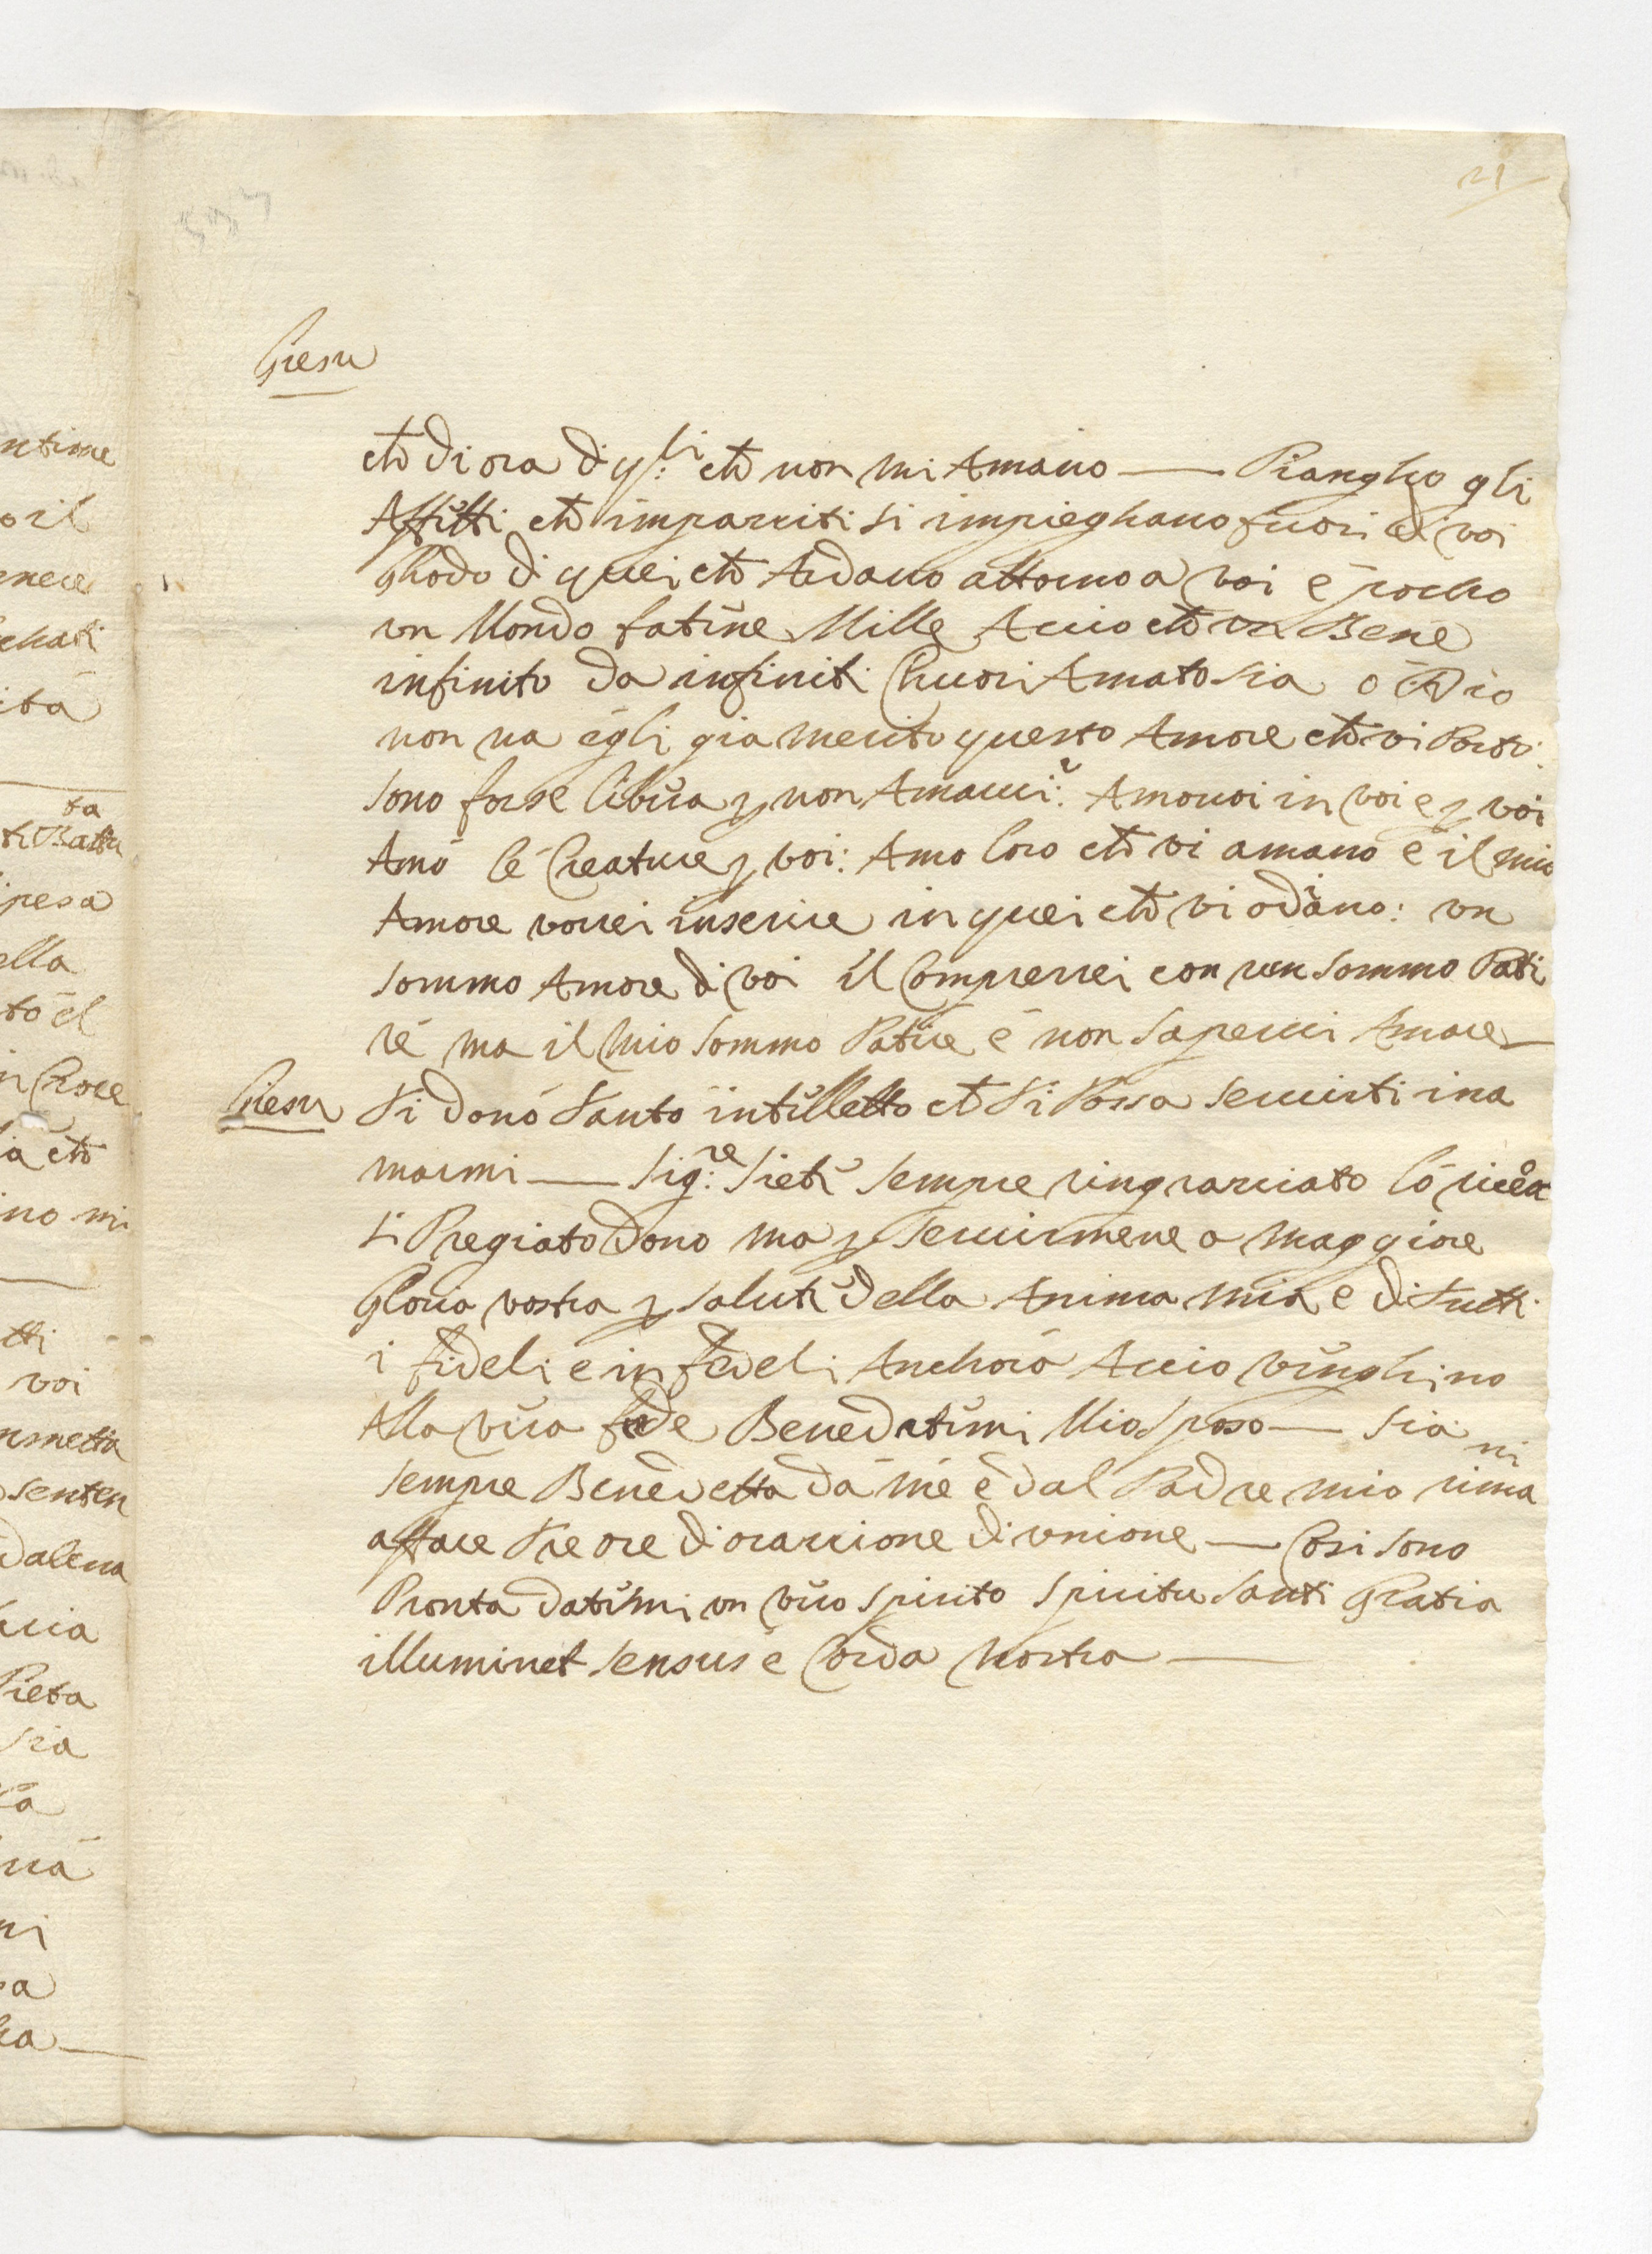 21
Giesu
che di ora di q.li che non mi Amano — Piangho gli
Affetti che imparriti si impieghano fuori di voi
Ghodo di quei che Ardano attorno a voi e pocho
un Mondo fatene Mille Accio che un Bene
infinito da infiniti Chuori Amato sia o Dio
non na egli gia merito questo Amore che vi Porto:
sono forse libera p non Amarvi? Amovoi in voi e p voi
Amo le Creature p voi: Amo loro che vi amano e il mio
Amore vorrei inserire in quei che vi odiano: un
sommo Amore di voi il Comprerrei con un sommo Pati
re ma il mio sommo Patire e non sapervi Amare —
Giesu Ti dono tanto intelletto che ti Possa servirti in a
marmi — Sig.re Siete sempre ringrarriato lo ricevo
si Pregiato dono ma p servirmene a maggiore
Gloria vostra p salute della Anima mia e di tutti
i fideli e in fedeli Anchora Accio venghino
Alla vera fede Benedetemi Mio Sposo — Sia
sempre Benedetta da me e dal Padre mio rima ni
affare tre ore di orarrione di unione — Cosi sono
Pronta datemi un vero spirito spiritu Santi Gratia
illuminet sensus e Corda nostra —
ntime
o il
ita
ta
pesa
ella
to el
n Croce
a che
ino mi
tti
voi
senten
dalena
Pieta
sia
ni